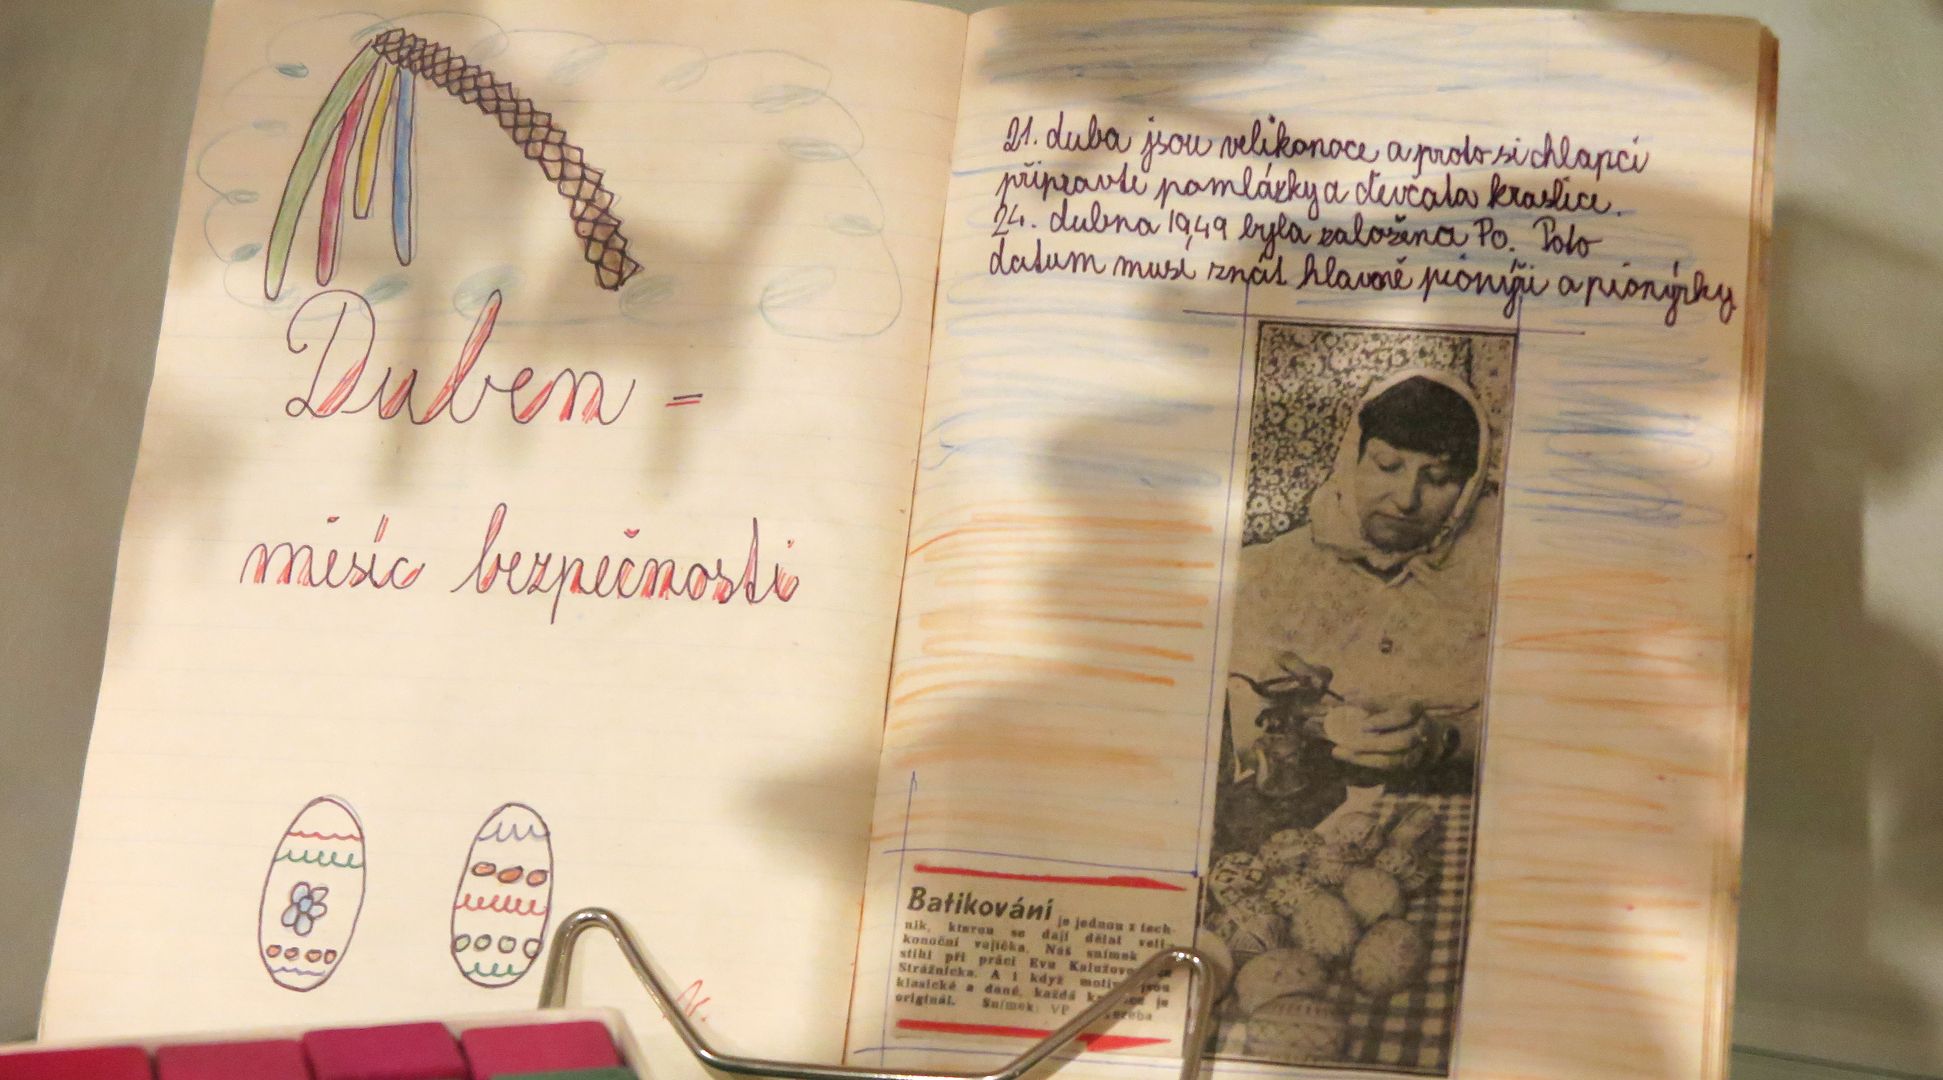 Duben =
měsíc bezpečnosti
21. duba jsou velikonoce a proto si chlapci
připravte pomlázky a děvčata kraslice.
24. dubna 1949 byla založena Po. Toto
datum musí znát hlavně pionýři a pionýrky
Batikování je jednou z tech-
nik, kterou se dají dělat veli-
konoční vajíčka. Náš snímek
stihl při práci Evu Kalužovou
Strážnicka. A i když motivy jsou
klasické a dané, každá je
originál. Snímek: VP